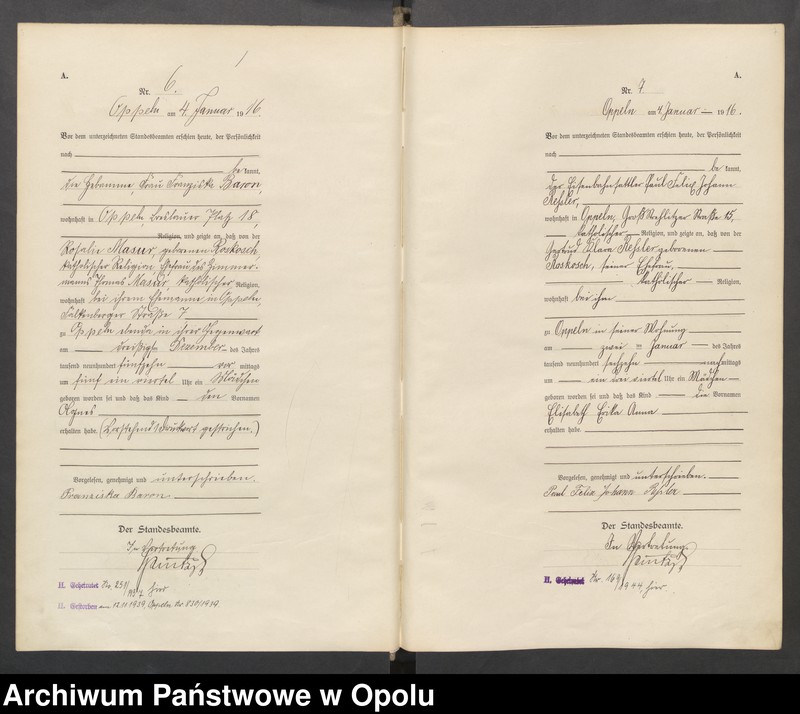 A.
Nr. 6.
Oppeln am 4. Januar 1916.
Vor dem unterzeichneten Standesbeamten erschien heute, der Persönlichkeit
nach
be kannt,
die Hebamme, Frau Franziska Baron,
wohnhaft in Oppeln, Breslauer Platz 18,
Religion, und zeigte an, daß von der
Rosalie Masur, geborenen Roskosch,
katholischer Religion, Ehefrau des Zimmer-
manns Thomas Masur, katholischer Religion,
wohnhaft bei ihrem Ehemanne in Oppeln
Falkenberger Straße 7
zu Oppeln ebenda in ihrer Gegenwart
am dreißigsten Dezember des Jahres
tausend neunhundert fünfzehn vor mittags
um fünf ein viertel Uhr ein Mädchen
geboren worden sei und daß das Kind den Vornamen
Agnes
erhalten habe. (Vorstehend 1 Druckwort gestrichen.)
Vorgelesen, genehmigt und unterschrieben.
Franziska Baron
Der Standesbeamte.
In Vertretung
H. Geheiratet Nr. 251/ hier
H. Gestorben am 12.11.1959, Oppeln Nr 830/1959.
A.
Nr. 7
Oppeln am 4. Januar 1916.
Vor dem unterzeichneten Standesbeamten erschien heute, der Persönlichkeit
nach
be kannt,
der Eisenbahnsattler Paul Felix Johann
Keßler,
wohnhaft in Oppeln, Groß Strehlitzer Straße 15,
katholischer Religion, und zeigte an, daß von der
Gertrud Klara Keßler geborenen
Roskosch, seiner Ehefrau,
katholischer Religion,
wohnhaft bei ihm
zu Oppeln in seiner Wohnung
am zwei ten Januar des Jahres
tausend neunhundert sechzehn nachmittags
um ein drei viertel Uhr ein Mädchen
geboren worden sei und daß das Kind die Vornamen
Elisabeth Erika Anna
erhalten habe.
Vorgelesen, genehmigt und unterschrieben.
Paul Felix Johann Keßler
Der Standesbeamte.
In Vertretung
H. Geheiratet Nr 169/1944, hier.
Archiwum Państwowe w Opolu